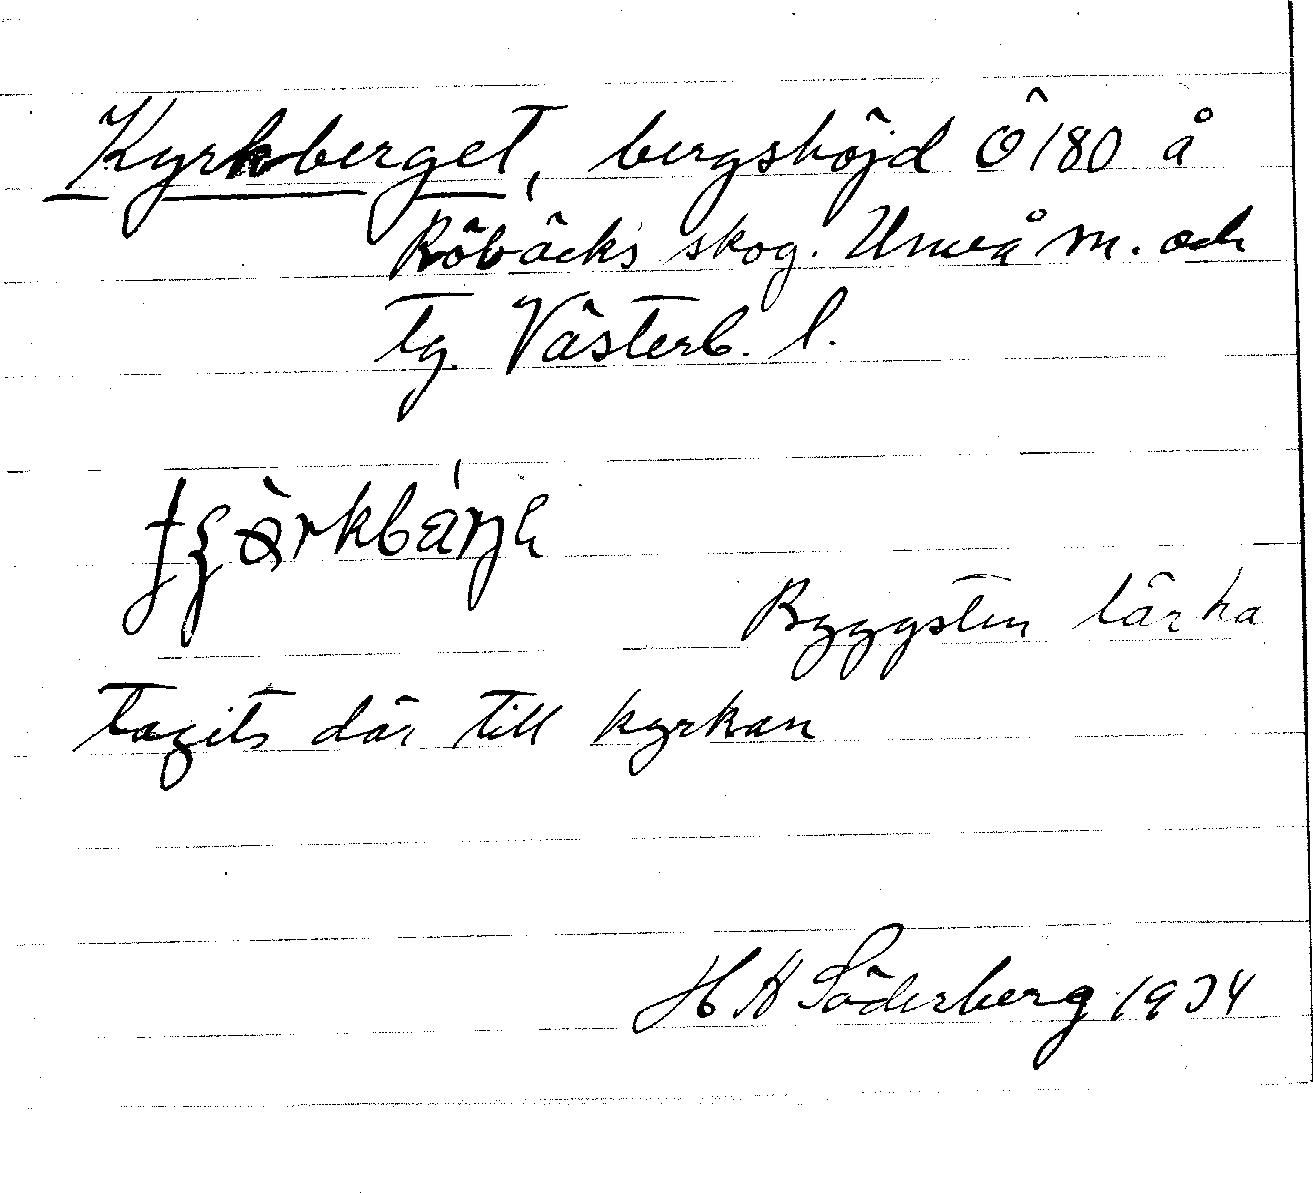 Kyrkberget, bergshöjd Ô 180 å
Röbäcks skog. Umeå sn. och
tg. Västerb. l.
Byggsten lär ha
tagits där till kyrkan
H H Söderberg 1934